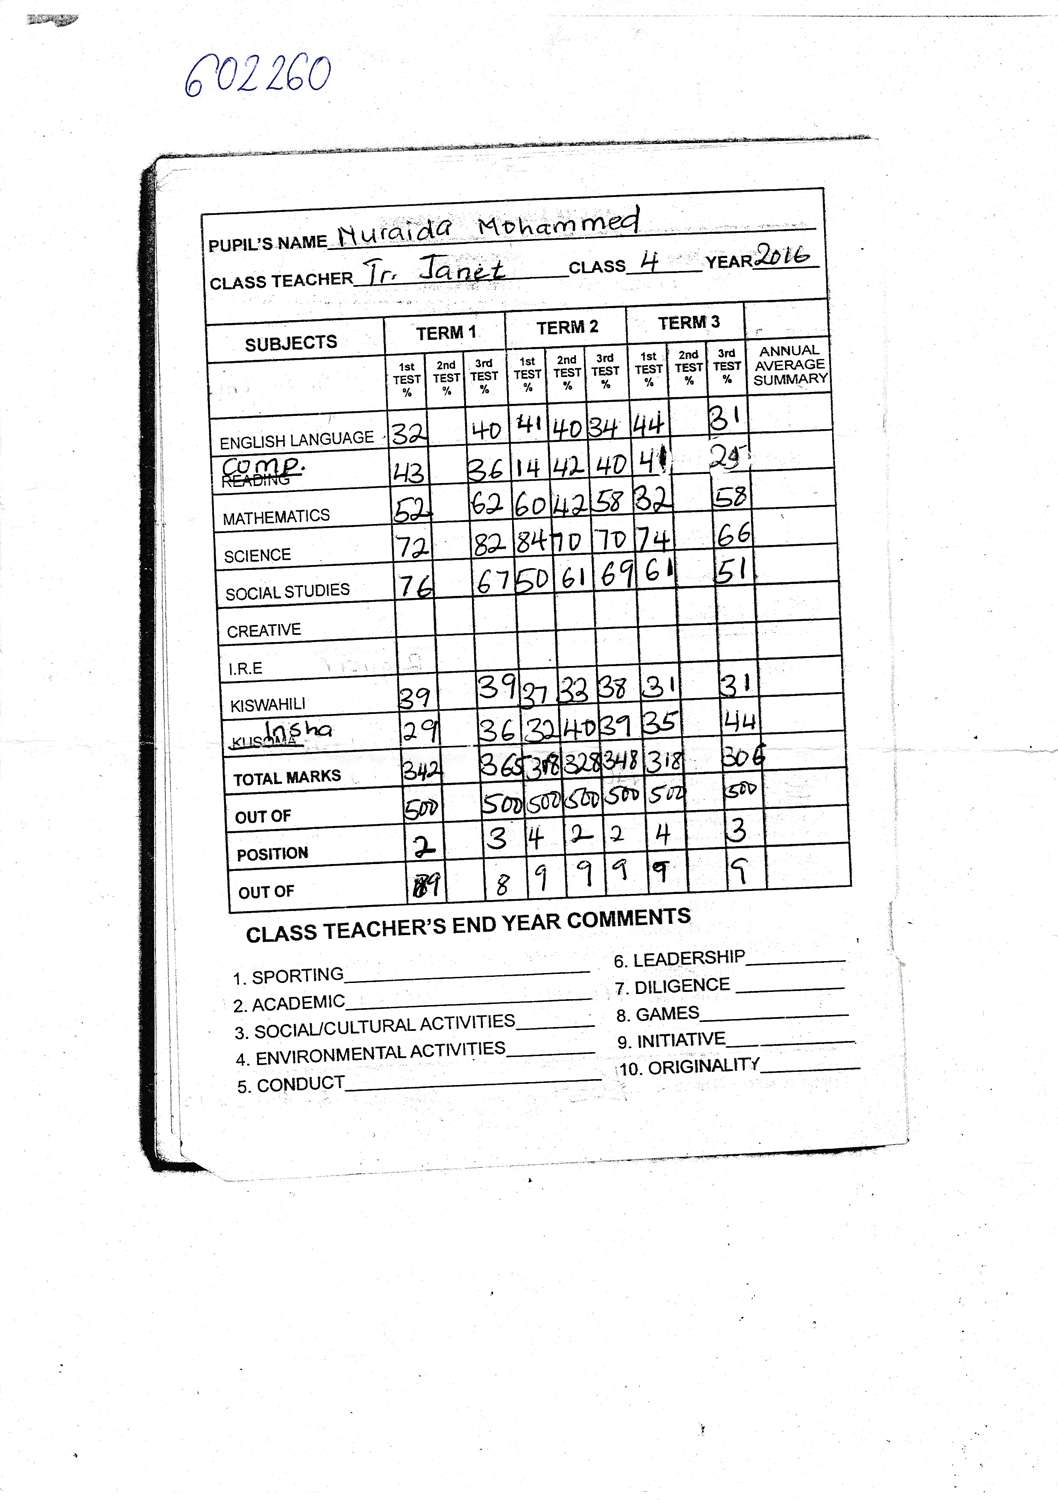 602260
PUPIL'S NAME Nuraida Mohammed
CLASS TEACHER Tr. Janet CLASS 4 YEAR 2016
SUBJECTS TERM 1 TERM 2 TERM 3
1st TEST % 2nd TEST % 3rd TEST % 1st TEST % 2nd TEST % 3rd TEST % 1st TEST % 2nd TEST % 3rd TEST % ANNUAL AVERAGE SUMMARY
ENGLISH LANGUAGE 32 40 41 40 34 44 31
Comp. READING 43 36 14 42 40 41 25
MATHEMATICS 52 62 60 42 58 32 58
SCIENCE 72 82 84 70 70 74 66
SOCIAL STUDIES 76 67 50 61 69 61 51
CREATIVE
I.R.E
KISWAHILI 39 39 37 33 38 31 31
KUSOMA Insha 29 36 32 40 39 35 44
TOTAL MARKS 342 365 318 328 348 318 306
OUT OF 500 500 500 500 500 500 500
POSITION 2 3 4 2 2 4 3
OUT OF 9 8 9 9 9 9 9
CLASS TEACHER'S END YEAR COMMENTS
1. SPORTING
2. ACADEMIC
3. SOCIAL/CULTURAL ACTIVITIES
4. ENVIRONMENTAL ACTIVITIES
5. CONDUCT
6. LEADERSHIP
7. DILIGENCE
8. GAMES
9. INITIATIVE
10. ORIGINALITY